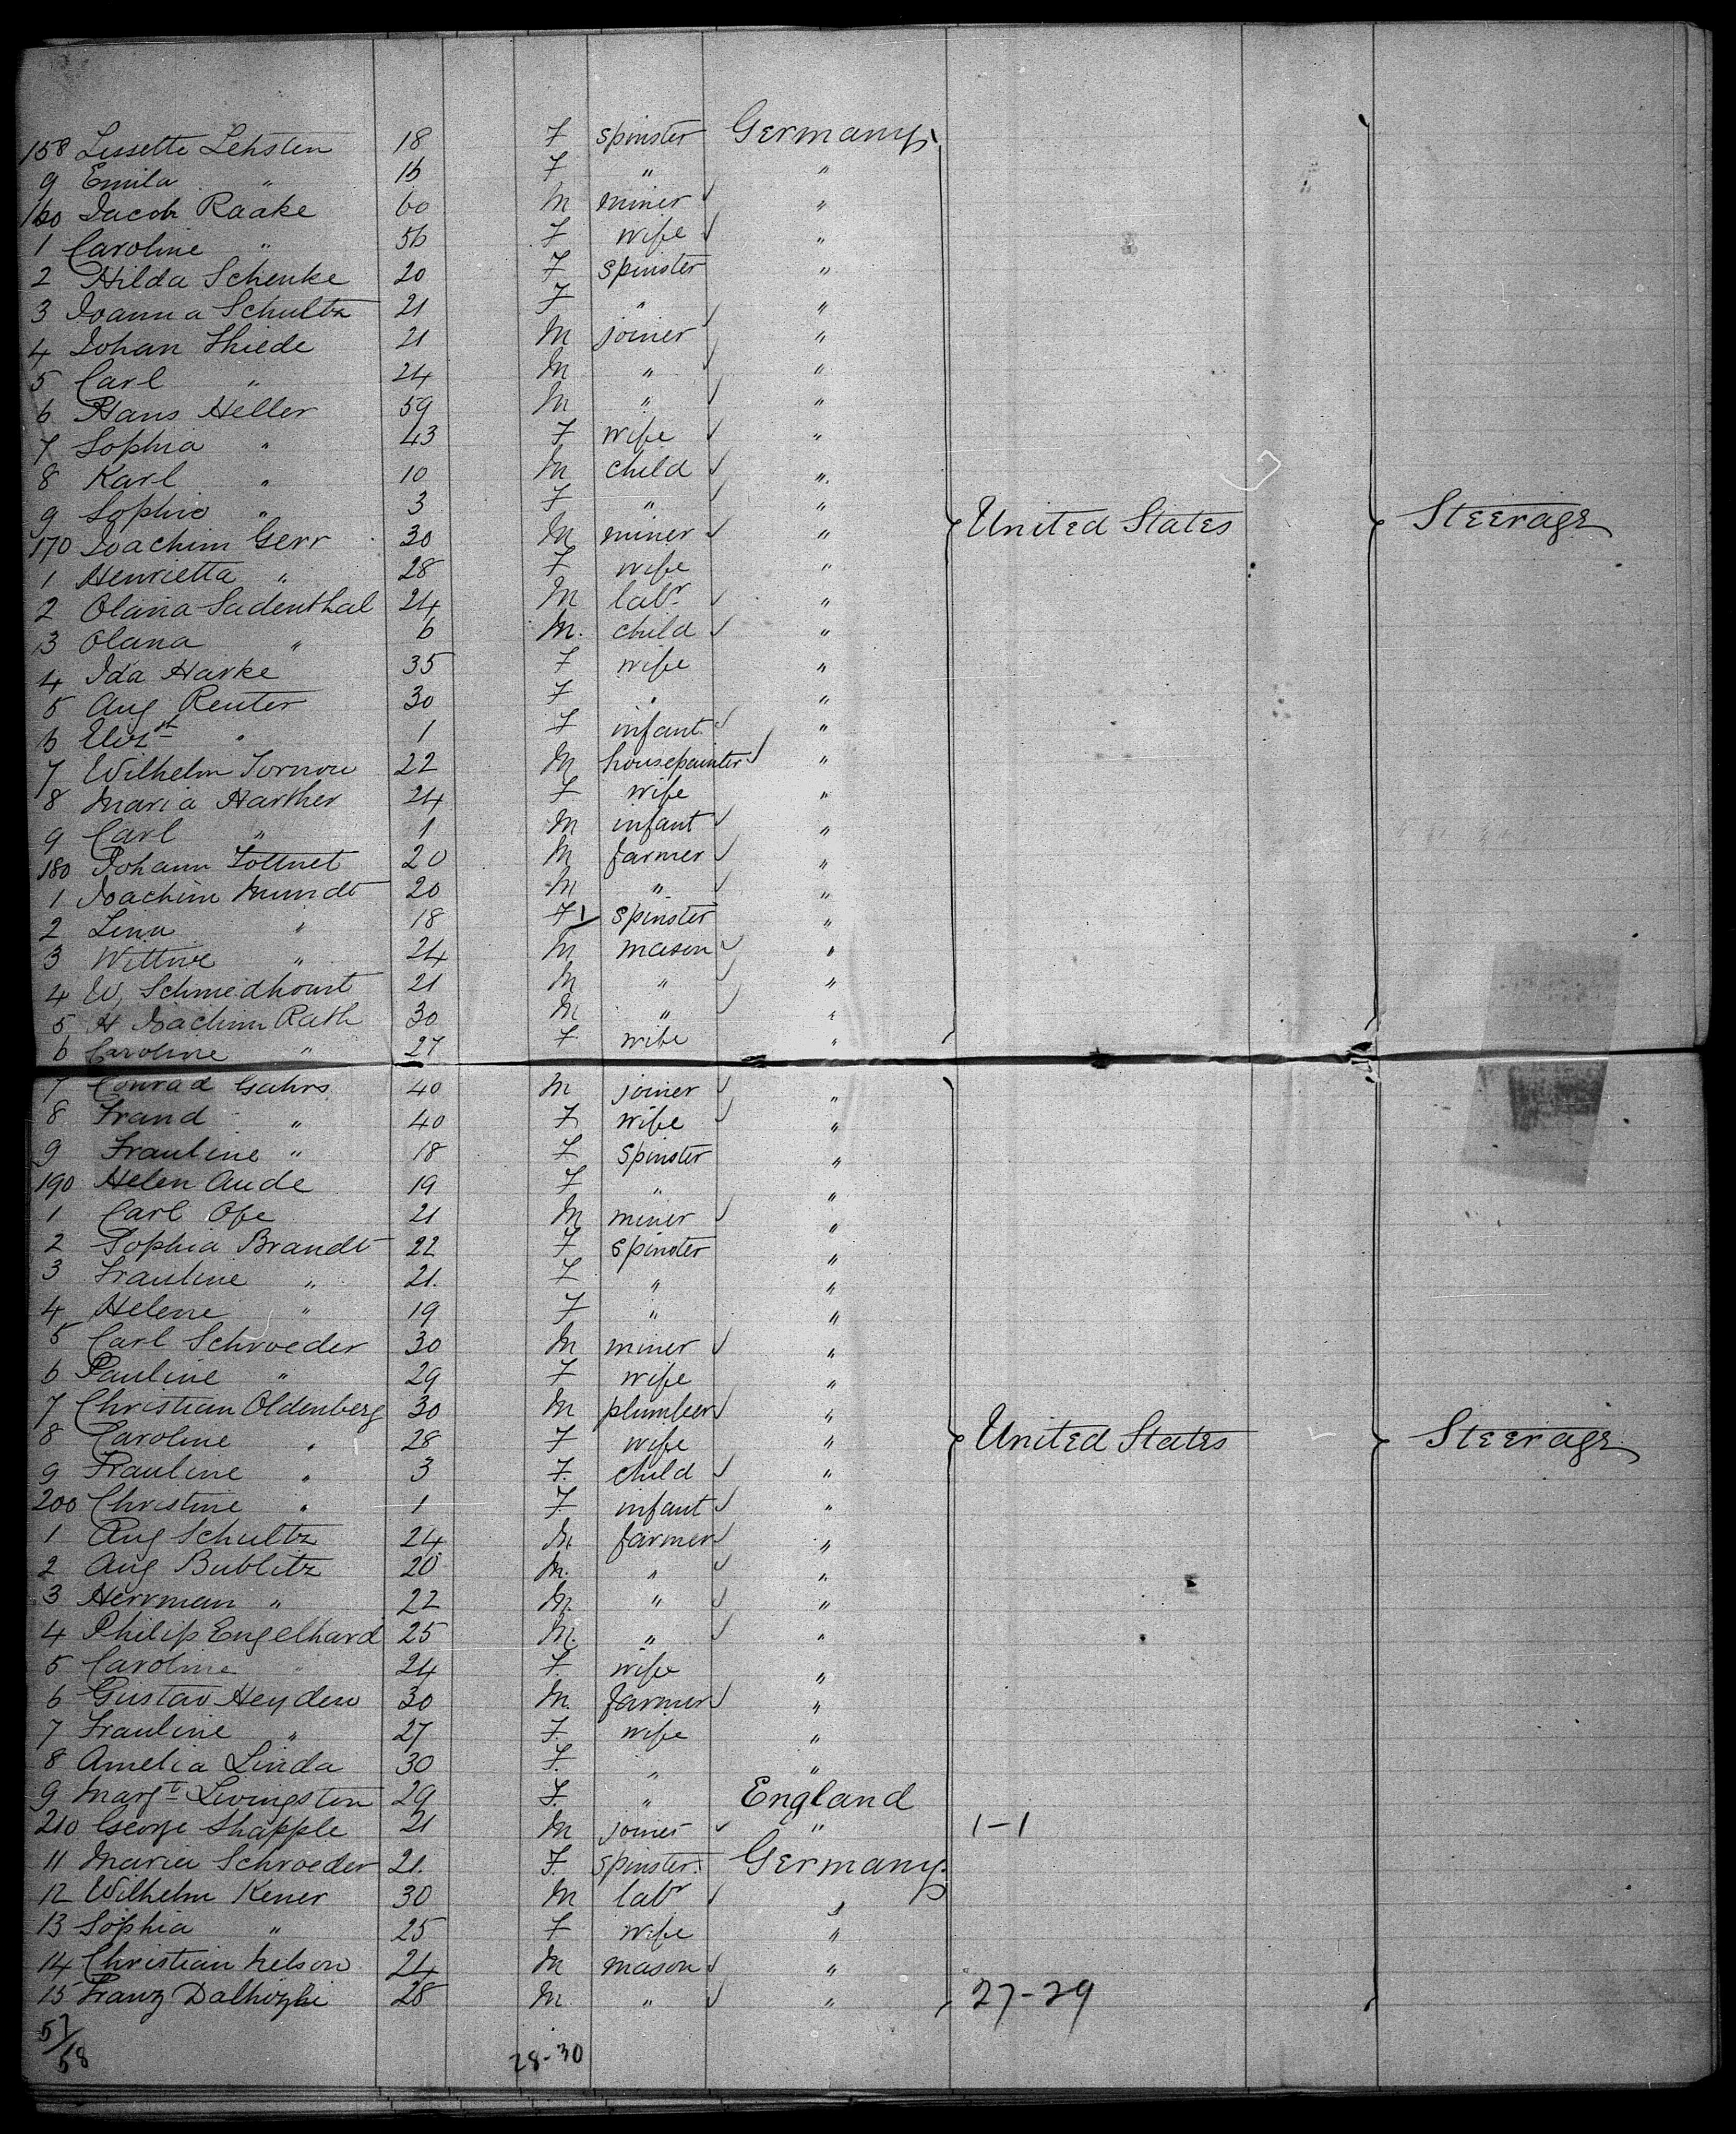 158 Lissette Lehsten 18 F spinster Germany
9 Emila " 16 F " "
160 Jacob Raake 60 M miner "
1 Caroline " 56 F wife "
2 Hilda Schenke 20 F spinster "
3 Joanna Schultz 21 F " "
4 Johan Thiede 21 M joiner "
5 Carl " 24 M " "
6 Hans Heller 59 M " "
7 Sophia " 43 F wife "
8 Karl " 10 M child "
9 Sophia " 3 F " "
170 Joachim Gerr 30 M miner " United States Steerage
1 Henrietta " 28 F wife "
2 Olana Sadenthal 24 M labr "
3 Olana " 6 M. child "
4 Ida Harke 35 F wife "
5 Aug Reuter 30 F " "
6 Elizth " 1 F infant "
7 Wilhelm Tornow 22 M housepainter "
8 Maria Harther 24 F wife "
9 Carl " 1 M infant "
180 Johann Tottnet 20 M farmer "
1 Joachim Mundt 20 M " "
2 Lina " 18 F 1 spinster "
3 Wittwe " 24 M mason "
4 W. Schmedhount 21 M " "
5 H Joachim Rath 30 M " "
6 Caroline " 27 F wife "
7 Conrad Gahrs 40 M joiner "
8 Frand " 40 F wife "
9 Frauline " 18 F Spinster "
190 Helen Aude 19 F " "
1 Carl Ofe 21 M miner "
2 Sophia Brandt 22 F spinster "
3 Frauline " 21. F " "
4 Helene " 19 F " "
5 Carl Schroeder 30 M miner "
6 Pauline " 29 F wife "
7 Christian Oldenberg 30 M plumber "
8 Caroline " 28 F wife " United States Steerage
9 Frauline " 3 F. child "
200 Christine " 1 F. infant "
1 Aug Schultz 24 M. farmer "
2 Aug Bublitz 20 M. " "
3 Herrman " 22 M. " "
4 Philip Engelhard 25 M. " "
5 Caroline " 24 F. wife "
6 Gustav Heyden 30 M. farmer "
7 Frauline " 27 F. wife "
8 Amelia Linda 30 F. " "
9 Margt Livingston 29 F. " England
210 George Shapple 21 M joiner " 1-1
11 Maria Schroeder 21. F. spinster. Germany
12 Wilhelm Kener 30 M labr "
13 Sophia " 25 F wife "
14 Christian Nelson 24 M mason "
15 Franz 28 M. " " 27-29
57/58 28-30